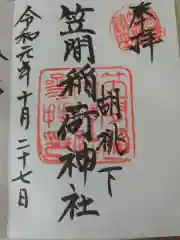 奉拝
胡桃下
笠間稲荷神社
令和元年十月二十七日